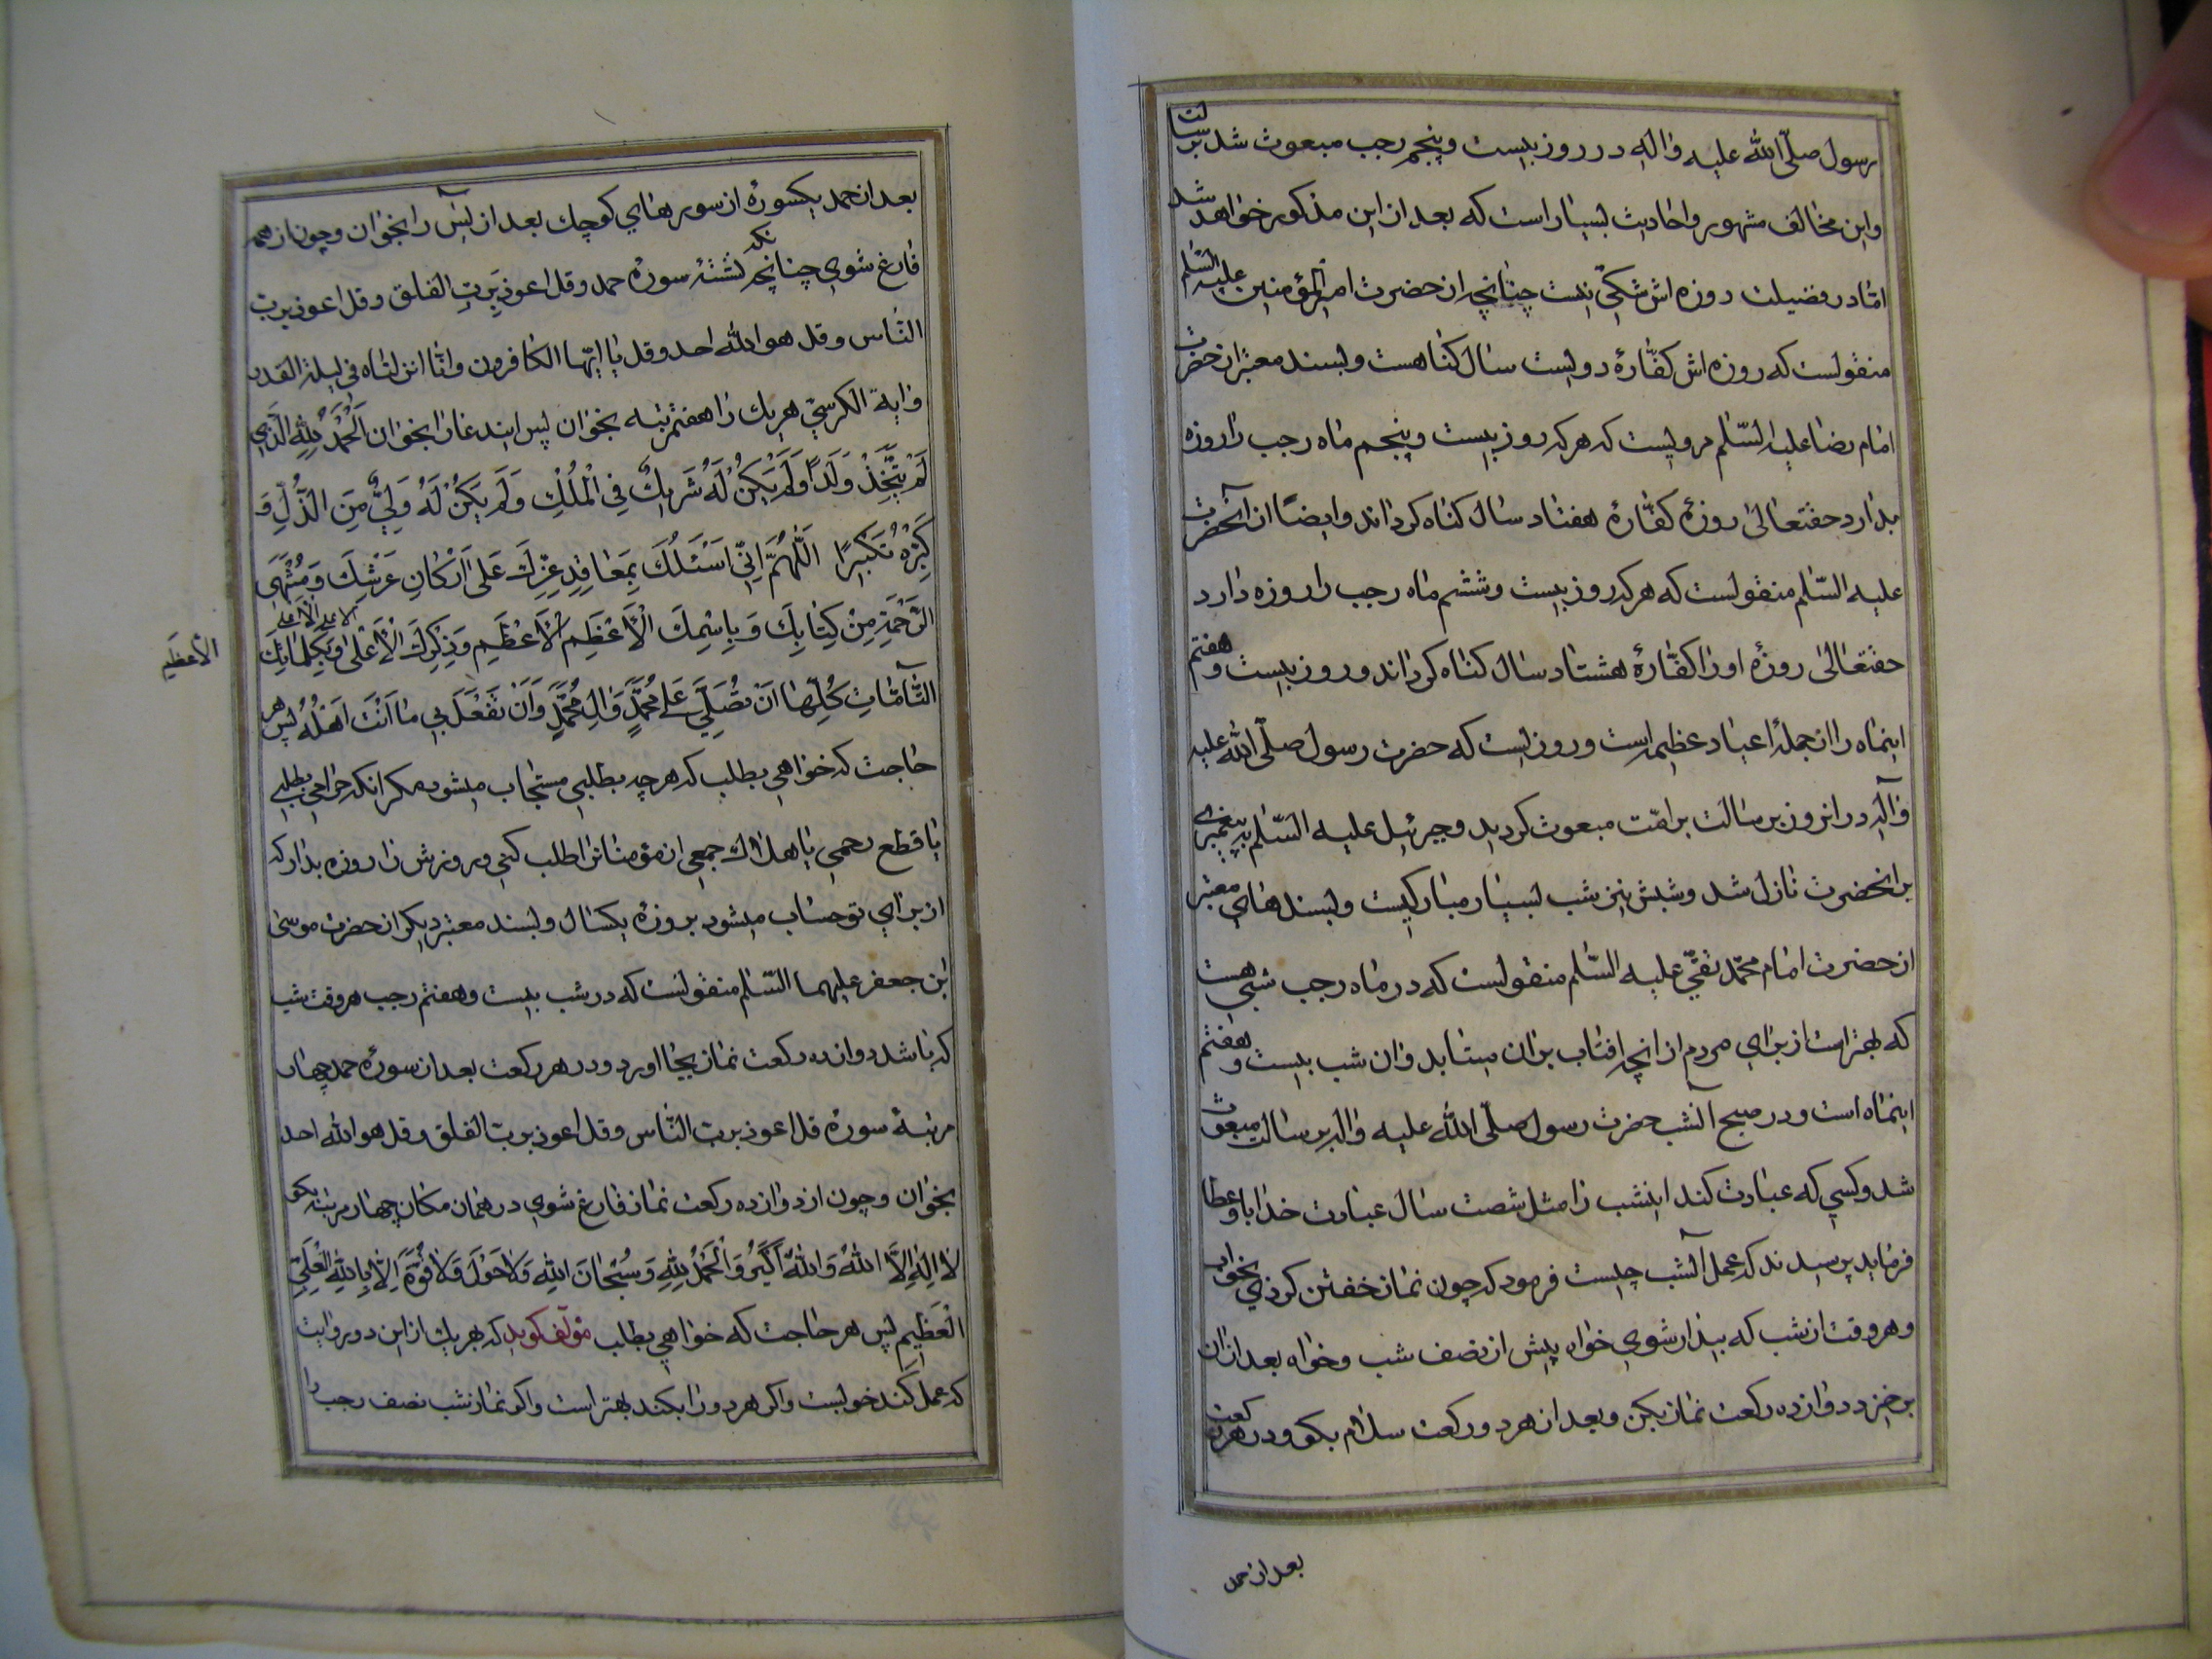 رسول صلّی الله علیه واله در روز بیست وپنجم رجب مبعوث شد برسالت
واین مخالف مشهور واحادیث بسیار است که بعد از این مذکور خواهد شد
امّا در فضیلت روزه اش شکّی نیست چنانچه از حضرت امیرالمؤمنین علیه السّلم
منقولست که روزه اش کفّارهٔ دویست سال کناهست وبسند معتبر از حضرت
امام رضا علیه السّلم مرویست که هر که روز بیست وپنجم ماه رجب را روزه
بدارد حقتعالی روزهٔ کفّارهٔ هفتاد سال کناه کرداند وایضًا از آنحضرت
علیه السّلم منقولست که هر که روز بیست وششم ماه رجب را روزه دارد
حقتعالی روزهٔ او را کفّارهٔ هشتاد سال کناه کرداند وروز بیست وهفتم
اینماه را از جملهٔ اعیاد عظیمه است وروزیست که حضرت رسول صلّی الله علیه
وآله در انروز برسالت بر امّت مبعوث کردید وجبرئیل علیه السّلم به پیغمبری
بر انحضرت نازل شد وشبش نیز شب بسیار مبارکیست وبسندهای معتبر
از حضرت امام محمّد تقیّ علیه السّلم منقولست که در ماه رجب شبی هست
که بهتر است از برای مردم از انچه افتاب بران میتابد وان شب بیست وهفتم
اینماه است ودر صبح آنشب حضرت رسول صلّی الله علیه واله برسالت مبعوث
شد وکسی که عبادت کند اینشب را مثل شصت سال عبادت خدا باو عطا
فرماید پرسیدند که عمل آنشب چیست فرمود که چون نماز خفتن کردی بخواب
وهر وقت از شب که بیدار شوی خواه پیش از نصف شب وخواه بعد از ان
برخیز ودوازده رکعت نماز بکن وبعد از هر دو رکعت سلام بکو ودر هر رکعت
بعد از حمد
بعد از حمد یکسورهٔ از سورهای کوچک بعد از یس را بخوان وچون از همه
فارغ شوی چنانچه نشستهٔ سورهٔ حمد وقل اعوذ بربّ الفلق وقل اعوذ بربّ
النّاس وقل هو الله احد وقل یا ایّها الکافرون وانّا انزلناه فی لیلة القدر
وایة الکرسیّ هر یک را هفتمرتبه بخوان پس ایندعا را بخوان اَلْحَمْدُ لِلّهِ الَّذی
لَمْ یَتَّخِذْ وَلَدًا وَلَمْ یَکُنْ لَهُ شَریكٌ فِی الْمُلْكِ وَلَمْ یَکُنْ لَهُ وَلِیٌّ مِنَ الذُّلِّ وَ
کَبِّرْهُ تَکْبیرًا اَللّهُمَّ اِنّی اَسْئَلُكَ بِمَعاقِدِ عِزِّكَ عَلی اَرْکانِ عَرْشِكَ وَمُنْتَهَی
الرَّحْمَةِ مِنْ کِتابِكَ وَبِاسْمِكَ الْاَعْظَمِ الْاَعْظَمِ وَذِکْرِكَ الْاَعْلی الاعلی الاعلی وَبِکَلِماتِكَ
الأعظَمِ
التّآمّاتِ کُلِّها اَنْ تُصَلِّیَ عَلی مُحَمَّدٍ وَالِ مُحَمَّدٍ وَاَنْ تَفْعَلَ بی ما اَنْتَ اَهْلُهُ پس هر
حاجت که خواهی بطلب که هر چه بطلبی مستجاب میشود مکر انکه حرامی بطلبی
یا قطع رحمی یا هلاك جمعی از مؤمنان را طلب کنی وروزش را روزه بدار که
از برای تو حساب میشود بروزهٔ یکسال وبسند معتبر دیکر از حضرت موسی
ابن جعفر علیهما السّلم منقولست که در شب بیست وهفتم رجب هر وقت شب
که باشد دوازده رکعت نماز بجا اورد ودر هر رکعت بعد از سورهٔ حمد چهار
مرتبهٔ سورهٔ قل اعوذ بربّ النّاس وقل اعوذ بربّ الفلق وقل هو الله احد
بخوان وچون از دوازده رکعت نماز فارغ شوی در همان مکان چهار مرتبه بکو
لا اِلهَ اِلَّا اللّهُ وَاللّهُ اَکْبَرُ وَالْحَمْدُ لِلّهِ وَسُبْحانَ اللّهِ وَلاحَوْلَ وَلاقُوَّةَ اِلّا بِاللّهِ الْعَلِیِّ
الْعَظیمِ پس هر حاجت که خواهی بطلب مؤلّف کوید که بهر یك از این دو روایت
که عمل کند خوبست واکر هر دو را بکند بهتر است واکر نماز شب نصف رجب را